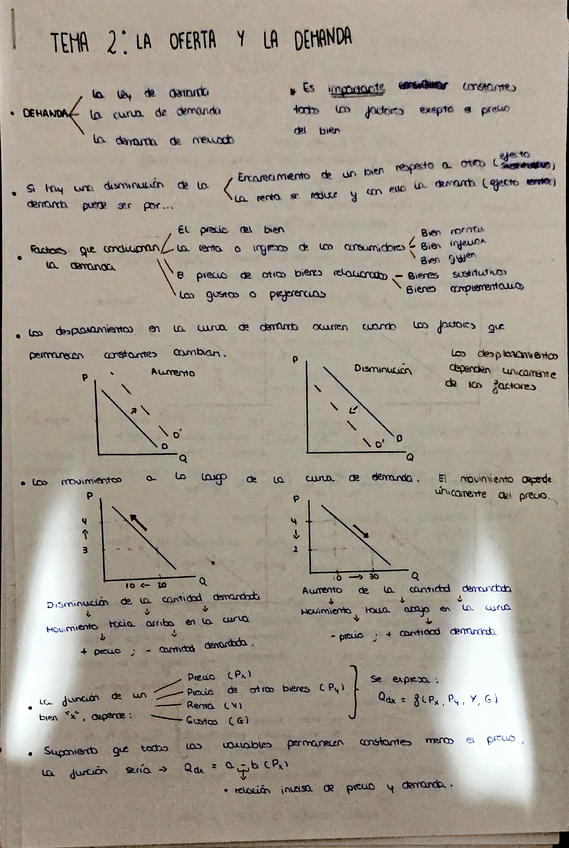 TEMA 2: LA OFERTA Y LA DEMANDA
• DEMANDA
La ley de demanda
La curva de demanda
La demanda de mercado
* Es importante constantes
todos los factores exepto el precio
del bien
• Si hay una disminución de la
demanda puede ser por...
Encarecimiento de un bien respecto a otros (efecto sustitutivo)
La renta se reduce y con ello la demanda (efecto renta)
• Factores que condicionan
la demanda
El precio del bien
La renta o ingresos de los consumidores
Bien normal
Bien inferior
Bien giffen
El precio de otros bienes relacionados
Bienes sustitutivos
Bienes complementarios
Los gustos o preferencias
• Los desplazamientos en la curva de demanda ocurren cuando los factores que
permanecen constantes cambian.
Los desplazamientos
dependen unicamente
de los factores
P Aumento
D'
D
Q
P Disminución
D
D'
Q
• Los movimientos a lo largo de la curva de demanda.
El movimiento depende
únicamente del precio.
P
4
↑
3
10 ← 20 Q
P
4
↓
2
10 → 30 Q
Disminución de la cantidad demandada
Movimiento hacia arriba en la curva
+ precio ; - cantidad demandada.
Aumento de la cantidad demandada
Movimiento hacia abajo en la curva
- precio ; + cantidad demandada
• La función de un
bien "x", depende:
Precio (Px)
Precio de otros bienes (Py)
Renta (Y)
Gustos (G)
Se expresa:
Qdx = f(Px, Py, Y, G)
• Suponiento que todas las variables permanecen constantes menos el precio,
la función sería → Qdx = a - b (Px)
• relación inversa de precio y demanda.